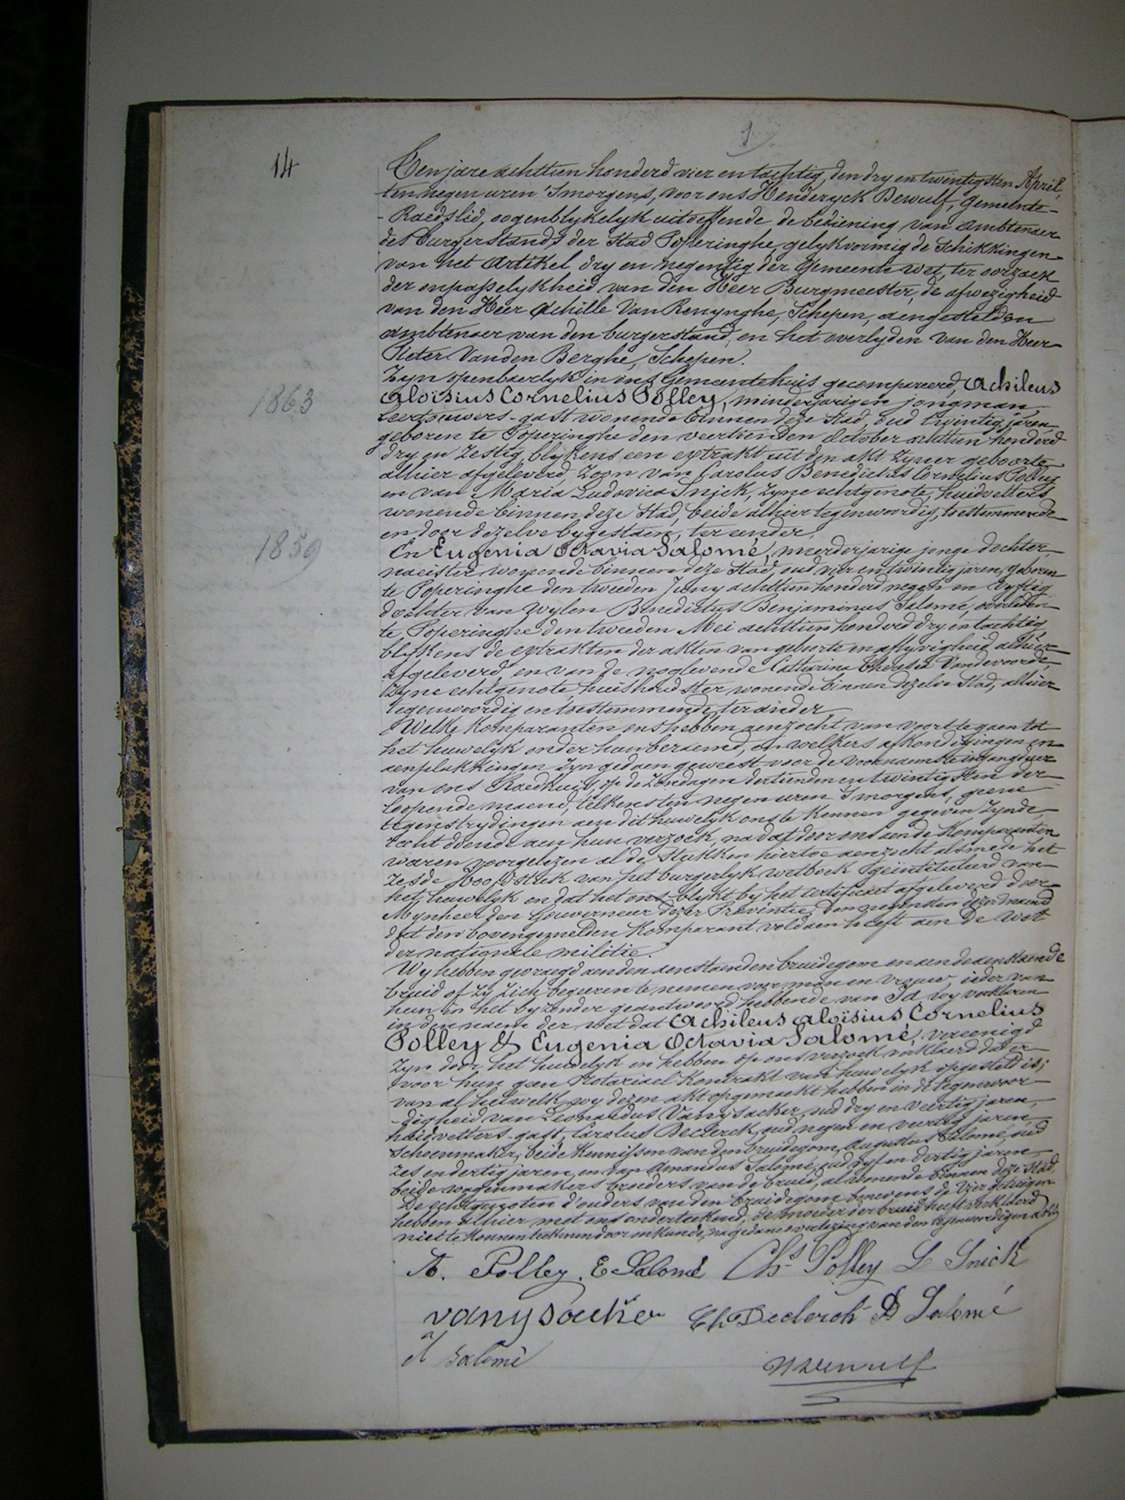 14
Ten jare achttien honderd vier en tachtig, den dry en twintigsten April
ten negen uren 's morgens, voor ons Henderyck Dewulf, Gemeente-
-Raedslid, oogenblykelyk uitoeffende de bediening van ambtenaer
de Burgerstands der Stad Poperinghe, gelykvormig de schikkingen
van het artikel dry en negentig der Gemeente wet, ter oorzaek
der onpasselykheid van den Heer Burgmeester, de afwezigheid
van den Heer Achille Van Renynghe, Schepen, aengestelden
ambtenaer van den burgerstand, en het overlyden van den Heer
Pieter Vanden Berghe, Schepen.
Zyn openbaerlyk in ons Gemeentehuis gecompareerd Achileus
1863
Aloïsius Cornelius Polley, minderjarigen jongman,
gast wonende binnen deze Stad, oud twintig jaren,
geboren te Poperinghe den veertienden October achttien honderd
dry en zestig, blykens een extrakt uit den akt zyner geboorte
alhier afgeleverd, zoon van Carolus Benedictus Cornelius Polley
en van Maria Ludovica Snick, zyne echtgenote, huidvetters
wonende binnen deze Stad, beide alhier tegenwoordig, toestemmende
en door dezelve bygestaen, ter eender.
1859
En Eugenia Octavia Salomé, meerderjarige jonge dochter,
naeister, wonende binnen deze Stad, oud vier en twintig jaren, geboren
te Poperinghe den tweeden Juny achttien honderd negen en vyftig
dochter van wylen Benedictus Benjaminus Salomé, overleden
te Poperinghe den tweeden Mei achttien honderd dry en tachtig
blykens de extrakten der akten van geboorte en aflyvigheid alhier
afgeleverd, en van de noglevende Catharina Theresia Vandevoorde,
zyne echtgenote, huishoudster, wonende binnen dezelve Stad, alhier
tegenwoordig en toestemmende, ter ander.
Welke Komparanten ons hebben aenzocht van voort te gaen tot
het huwelyk onder hun beraemd, en welkers afkondigingen en
aenplakkingen zyn gedaen geweest voor de voornaemste ingangdeur
van ons Raedhuis, op de zondagen dertienden en twintigsten der
loopende maend, telkens ten negen uren 's morgens, geene
tegenstrydingen aen dit huwelyk ons te kennen gegeven zynde,
recht doende aen hun verzoek, na dat door ons aen de Komparanten
waren voorgelezen al de stukken hiertoe aenzocht alsmede het
zesde hoofdstuk van het burgerlyk wetboek geïntituleerd van
het huwelyk en dat het ons blykt by het certificaet afgeleverd door
Mynheer den Gouverneur dezer Provintie, den negensten dezer maend
dat den bovengemelden Komparant voldaen heeft aen De wet
der nationale militie.
Wy hebben gevraegd aen den aenstaenden bruidegom en aen de aenstaende
bruid of zy zich begeeren te nemen voor man en vrouw, ieder van
hun in het byzonder geantwoord hebbende van Ja, wy verklaren
in den naem der wet dat Achileus Aloïsius Cornelius
Polley & Eugenia Octavia Salomé, vereenigd
zyn door het huwelyk en hebben op ons verzoek verklaerd dat er
voor hun geen Notariael Kontrakt van huwelyk opgesteld is;
van al hetwelk wy dezen akt opgemaekt hebben in de tegenwoor-
-digheid van Leonardus Vanysacker, oud dry en veertig jaren,
huidvetters-gast, Carolus Declerck, oud negen en veertig jaren,
schoenmaker, beide Kennissen van den bruidegom, Augustus Salomé, oud
zes en dertig jaren, en van Amandus Salomé, oud vyf en dertig jaren
beide wagenmakers broeders van de bruid, al wonende binnen deze Stad.
De echtgenoten d'ouders van den bruidegom benevens de vier getuigen
hebben alhier met ons onderteekend, de moeder der bruid heeft verklaerd
niet te kunnen teekenen door onkunde, na gedane voorlezing van den tegenwoordigen akt
A. Polley. E Salomé Chs Polley L Snick
vanysacker Ch Declerck A Salomé
A Salomé
H Dewulf